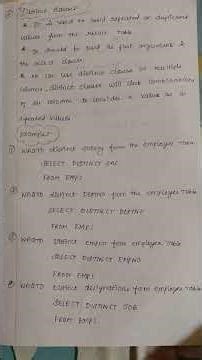 Distinct clause
* It is used to avoid repeated or duplicate
values from the result table
* It should be used as first argument to
the select clause
* We can use distinct clause on multiple
columns, distinct clause will check combinations
of all columns to consider a value as an
repeated values
Examples
① WAQTD distinct salary from the employee table
SELECT DISTINCT SAL
FROM EMP;
② WAQTD distinct DEPTNO from the employee table
SELECT DISTINCT DEPTNO
FROM EMP;
WAQTD distinct empno from employee table
SELECT DISTINCT EMPNO
FROM EMP;
WAQTD distinct designations from employee table
SELECT DISTINCT JOB
FROM EMP;